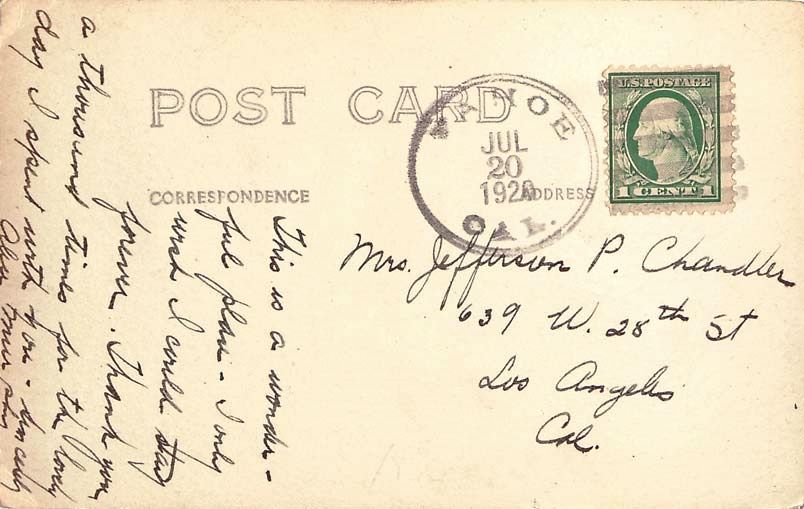 POST CARD
CORRESPONDENCE
ADDRESS
TAHOE
JUL
20
1920
CAL.
U.S. POSTAGE
1 CENT 1
This is a wonder-
ful place - I only
wish I could stay
forever. Thank you
a thousand times for the lovely
day I spent with you - Sincerely
Mrs. Jefferson P. Chandler
639 W. 28th St
Los Angeles
Cal.